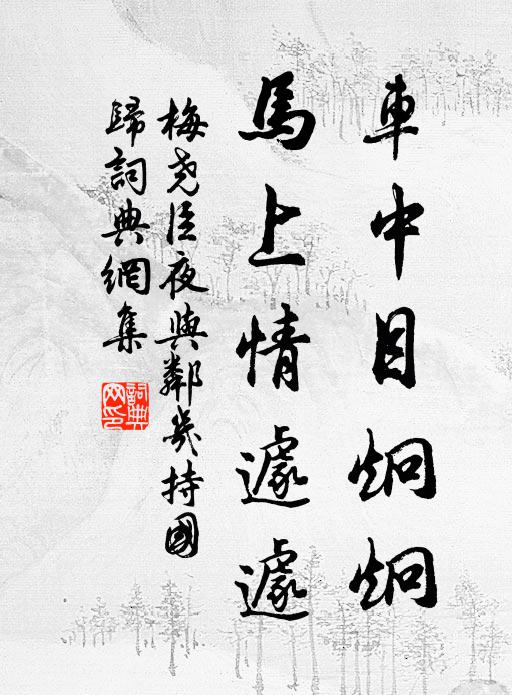 車中目炯炯
馬上情遽遽
梅堯臣夜與鄰幾持國
歸詞典網集
詞典
网印